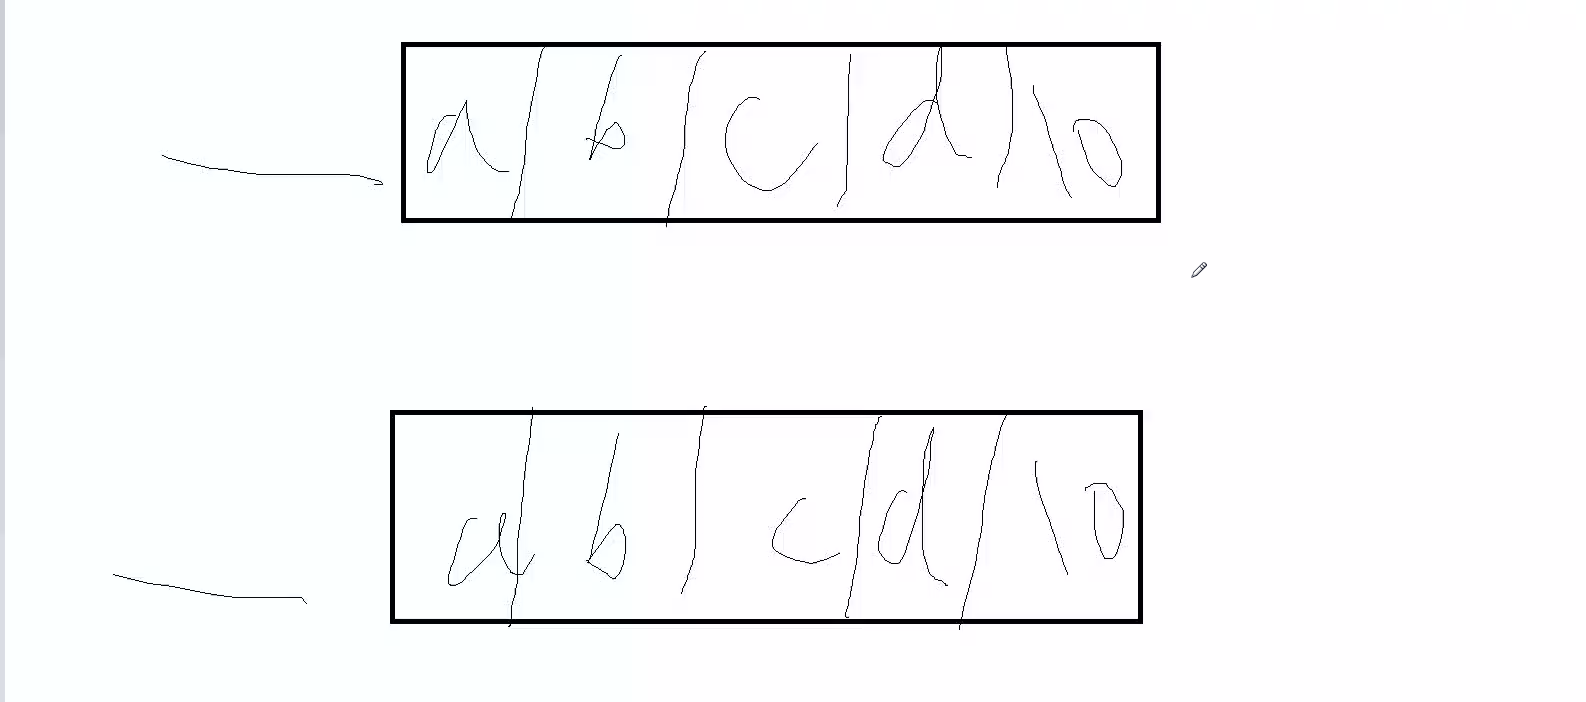 a b c d \0
a b c d \0